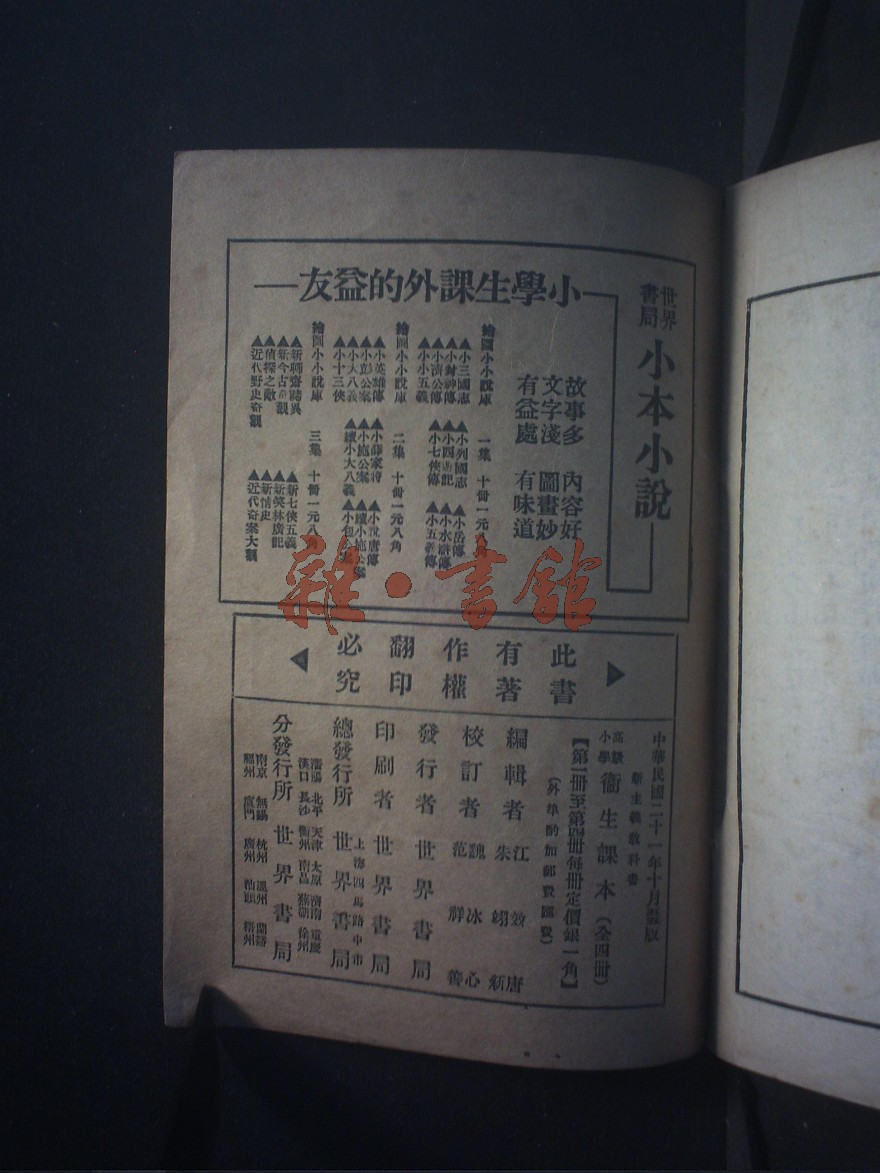 世界書局
小本小說
小學生課外的益友
故事多 內容好
文字淺 圖畫妙
有益處 有味道
繪圖小小說庫 一集 十冊一元八角
▲小三國志 ▲小列國志 ▲小岳傳
▲小封神傳 ▲小四遊記 ▲小水滸傳
▲小濟公傳 ▲小七俠傳 ▲小五義傳
▲小小五義
繪圖小小說庫 二集 十冊一元八角
▲小英雄傳 ▲小薛家將 ▲小說唐傳
▲小彭公案 ▲小施公案 ▲續小施公案
▲小大八義 ▲續小大八義 ▲小包公案
▲小十三俠
繪圖小小說庫 三集 十冊一元八角
▲新聊齋誌異 ▲新七俠五義
▲新今古奇觀 ▲新笑林廣記
▲偵探之敵 ▲新情史
▲近代野史奇觀 ▲近代奇案大觀
雜·書館
此書有著作權翻印必究
中華民國二十一年十月
新主義教科書
高級小學 衞生課本 (全四冊)
【第一冊至第四冊每冊定價銀一角】
(外埠酌加郵費匯費)
編輯者 江效唐 朱翊新
校訂者 魏冰心 范祥善
發行者 世界書局
印刷者 世界書局
上海四馬路中市
總發行所 世界書局
瀋陽 北平 天津 太原 濟南 重慶
漢口 長沙 衢州 南昌 蕪湖 徐州
分發行所 世界書局
南京 無錫 杭州 溫州 蘭谿
福州 廈門 廣州 汕頭 梧州